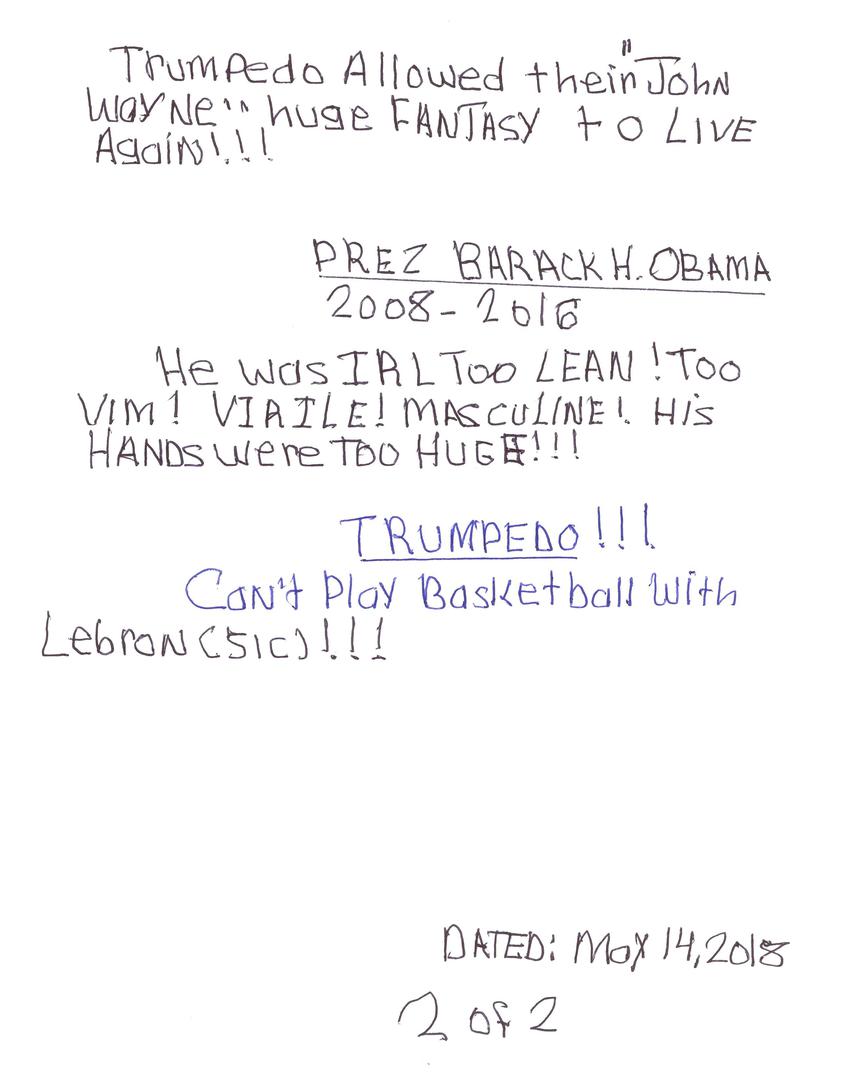 Trumpedo Allowed their "John
Wayne" huge FANTASY to LIVE
Again!!!
PREZ BARACK H. OBAMA
2008-2016
He was IRL Too LEAN! Too
VIM! VIRILE! MASCULINE! His
HANDS were Too HUGE!!!
TRUMPEDO!!!
Can't Play Basketball With
Lebron (sic)!!!
DATED: May 14, 2018
2 of 2